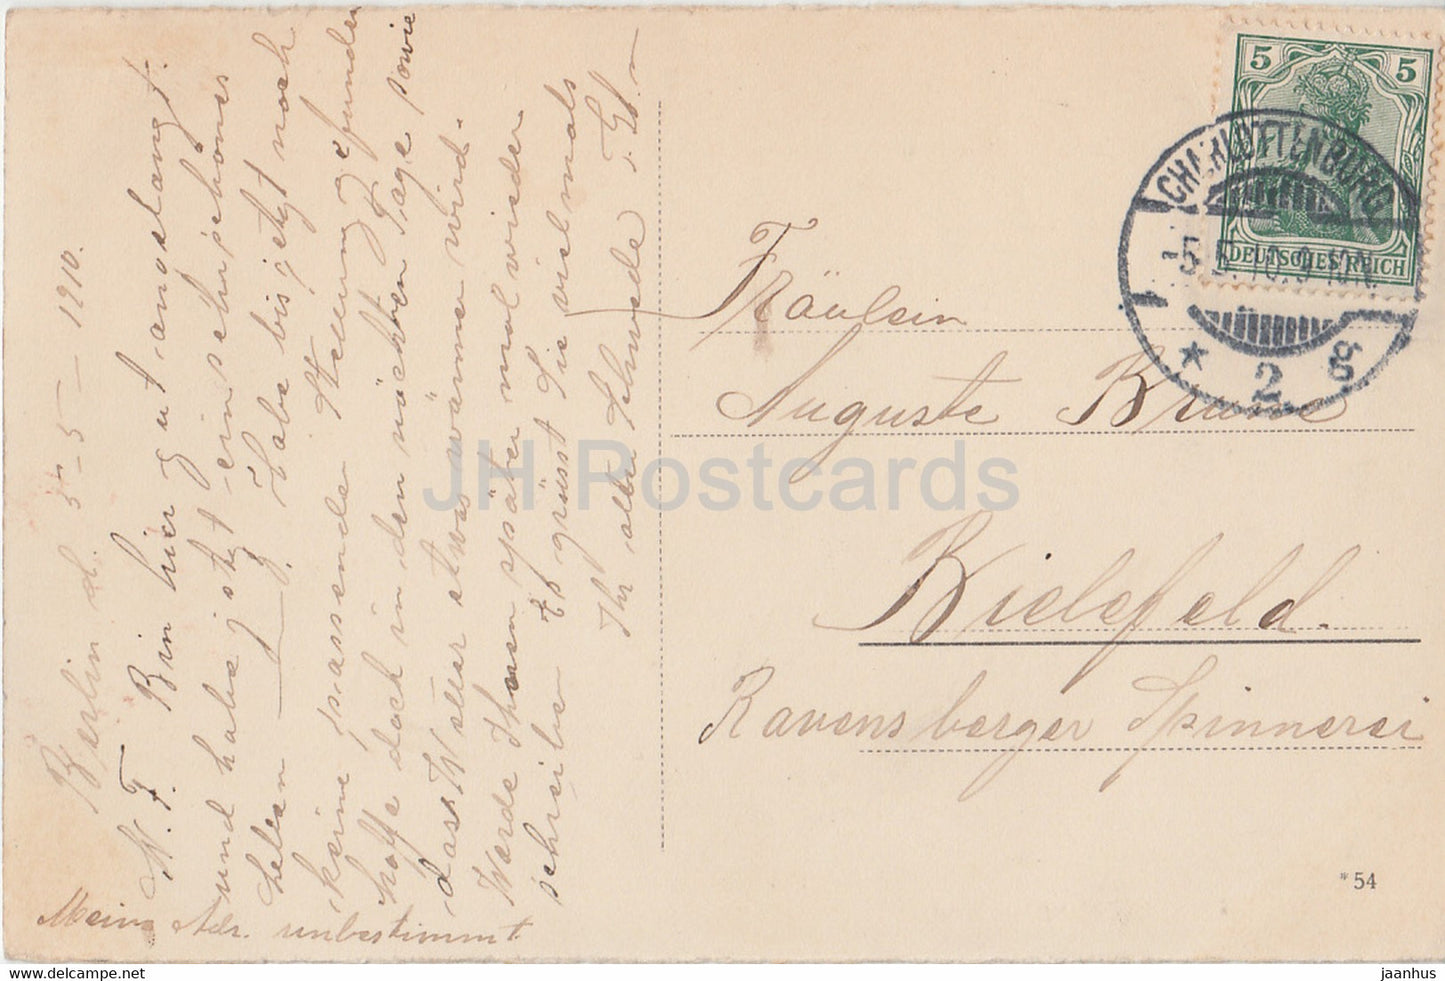 Berlin d. 5-5-1910.
W. F. Bin hier gut angelangt.
und habe jetzt ein sehr schönes
Leben — Habe bis jetzt noch
keine passende Stellung gefunden
hoffe doch in den nächsten Tage sowie
dass Wetter etwas wärmer wird.
Werde Ihnen später mal wieder
schreiben Es grüsst Sie vielmals
Ihr alter Schwede
Meine Adr. unbestimmt
5 5
DEUTSCHES REICH
CHARLOTTENBURG
5.5.10.9
* 2 g
Fräulein
Auguste Brune
Bielefeld.
Ravensberger Spinnerei
*54
JH Postcards
www.delcampe.net
jaanhus